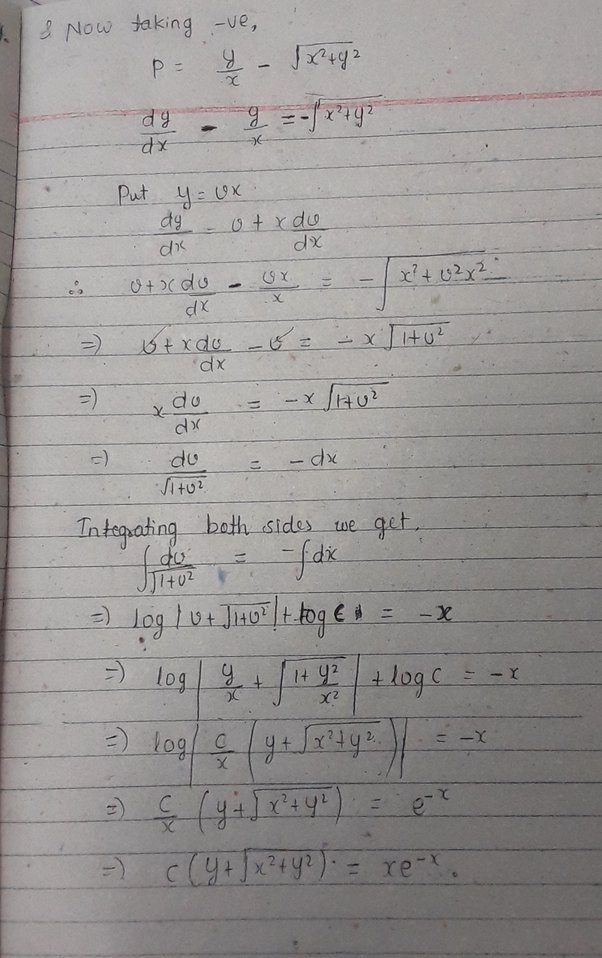 & Now taking -ve,
P = y/x - √x²+y²
dy/dx - y/x = -√x²+y²
Put y = vx
dy/dx = v + x dv/dx
∴ v + x dv/dx - vx/x = -√x²+v²x²
⇒ v + x dv/dx - v = - x√1+v²
⇒ x dv/dx = -x√1+v²
⇒ dv/√1+v² = -dx
Integrating both sides we get,
∫dv/√1+v² = -∫dx
⇒ log|v+√1+v²| + log c = -x
⇒ log|y/x + √1+y²/x²| + log c = -x
⇒ log|c/x (y+√x²+y²)| = -x
⇒ c/x (y+√x²+y²) = e⁻ˣ
⇒ c(y+√x²+y²) = xe⁻ˣ.